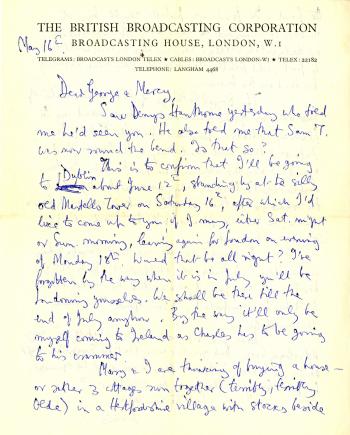 THE BRITISH BROADCASTING CORPORATION
BROADCASTING HOUSE, LONDON, W.1
TELEGRAMS: BROADCASTS LONDON TELEX ★ CABLES: BROADCASTS LONDON-W1 ★ TELEX: 22182
TELEPHONE: LANGHAM 4468
May 16th
Dear George & Mercy,
Saw Denys Hawthorne yesterday who told
me he'd seen you. He also told me that Sam T.
was now round the bend. Is that so?
This is to confirm that I'll be going
to Dublin about June 12th, standing by at the silly
old Martello Tower on Saturday 16th, after which I'd
like to come up to you, if I may, either Sat. night
or Sun. morning, leaving again for London on evening
of Monday 18th. Would that be all right? I've
forgotten by the way when it is in July you'll be
Londoning yourselves. We shall be there till the
end of July anyhow. By the way it'll only be
myself coming to Ireland as Charles has to be going
to his crammer.
Mary & I are thinking of buying a house —
or rather 3 cottages run together (terribly, terribly
Olde) in a Hertfordshire village with stocks beside